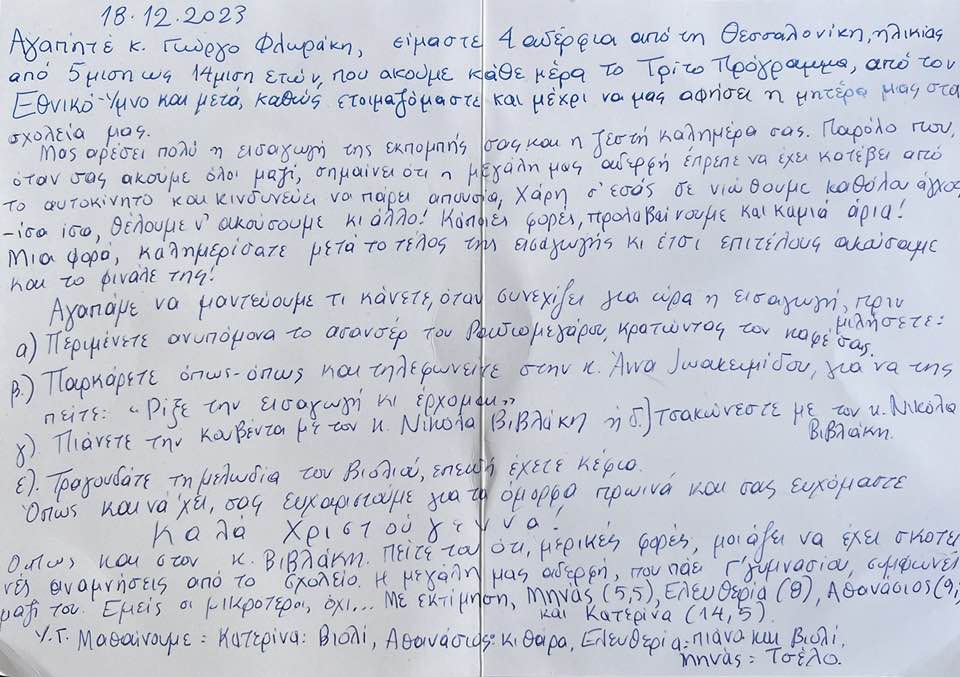 18.12.2023
Αγαπητέ κ. Γιώργο Φλωράκη, είμαστε 4 αδέρφια από τη Θεσσαλονίκη, ηλικίας
από 5μιση ως 14μιση ετών, που ακούμε κάθε μέρα το Τρίτο Πρόγραμμα, από τον
Εθνικό Ύμνο και μετά, καθώς ετοιμαζόμαστε και μέχρι να μας αφήσει η μητέρα μας στα
σχολεία μας.
Μας αρέσει πολύ η εισαγωγή της εκπομπής σας και η ζεστή καλημέρα σας. Παρόλο που,
όταν σας ακούμε όλοι μαζί, σημαίνει ότι η μεγάλη μας αδερφή έπρεπε να έχει κατέβει από
το αυτοκίνητο και κινδυνεύει να πάρει απουσία, Χάρη σ' εσάς δε νιώθουμε καθόλου άγχος
-ίσα ίσα, θέλουμε ν' ακούσουμε κι άλλο! Κάποιες φορές, προλαβαίνουμε και καμιά άρια!
Μια φορά, καλημερίσατε μετά το τέλος της εισαγωγής κι έτσι επιτέλους ακούσαμε
και το φινάλε της!
Αγαπάμε να μαντεύουμε τι κάνετε, όταν συνεχίζει για ώρα η εισαγωγή, πριν
μιλήσετε:
α) Περιμένετε ανυπόμονα το ασανσέρ του Ραδιομεγάρου, κρατώντας τον καφέ σας.
β.) Παρκάρετε όπως-όπως και τηλεφωνείτε στην κ. Άννα Ιωακειμίδου, για να της
πείτε: "Ρίξε την εισαγωγή κι έρχομαι"
γ) Πιάνετε την κουβέντα με τον κ. Νικόλα Βιβλάκη ή δ.) τσακώνεστε με τον κ. Νικόλα
Βιβλάκη.
ε). Τραγουδάτε τη μελωδία του Βιολιού, επειδή έχετε κέφια.
Όπως και νά 'χει, σας ευχαριστούμε για τα όμορφα πρωινά και σας ευχόμαστε
Καλά Χριστούγεννα!
Όπως και στον κ. Βιβλάκη. Πείτε του ότι, μερικές φορές, μοιάζει να έχει σκοτει
νές αναμνήσεις από το σχολείο. Η μεγάλη μας αδερφή, που πάει Γ' γυμνασίου, συμφωνεί
μαζί του. Εμείς οι μικρότεροι, όχι... Με εκτίμηση, Μηνάς (5,5), Ελευθερία (8), Αθανάσιος (9,
και Κατερίνα (14,5).
Υ.Γ. Μαθαίνουμε: Κατερίνα: Βιολί, Αθανάσιος: κιθάρα, Ελευθερία: πιάνο και βιολί,
Μηνάς: Τσέλο.